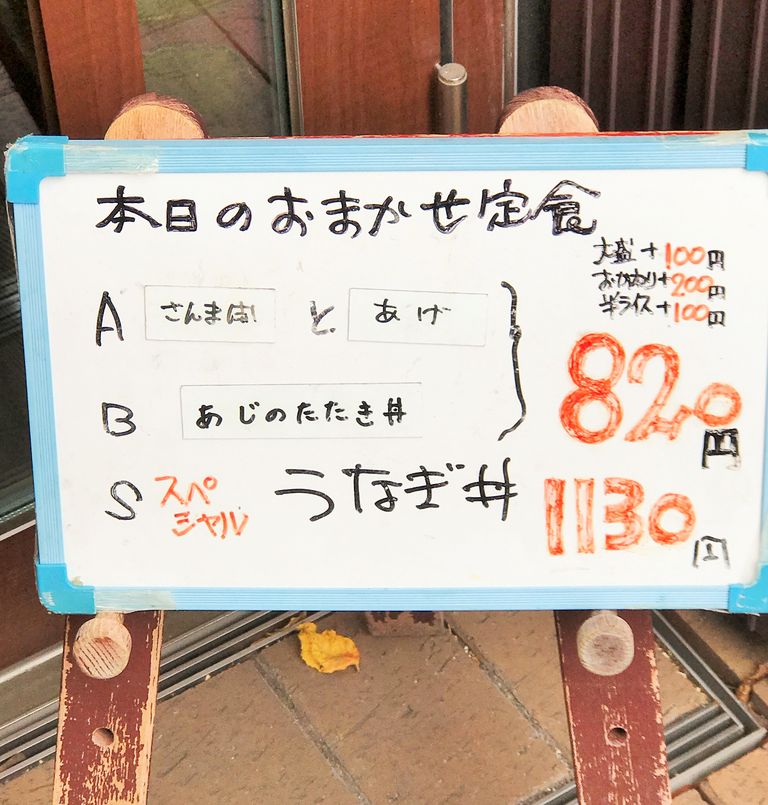 本日のおまかせ定食
大盛+100円
おかわり+200円
半ライス+100円
A さんま
と あげ
B あじのたたき丼
820円
S スペシャル うなぎ丼 1130円